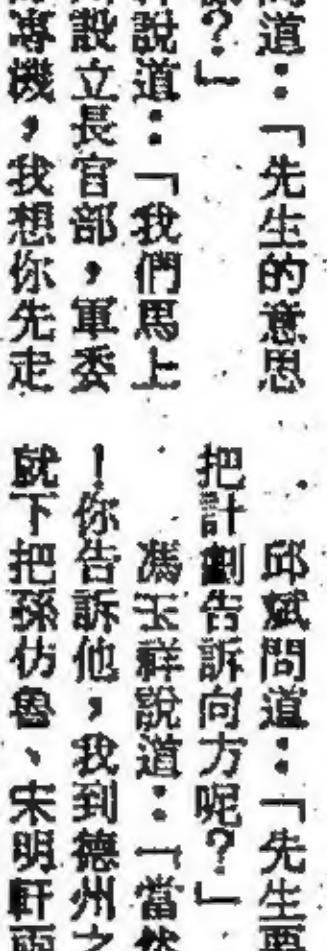 道：「先生的意思
？」
說道：「我們馬上
設立長官部，軍委
專機，我想你先走
邱斌問道：「先生要
把計劃告訴向方呢？」
馮玉祥說道：「當然
！你告訴他，我到德州之
就下把孫仿魯、宋明軒兩